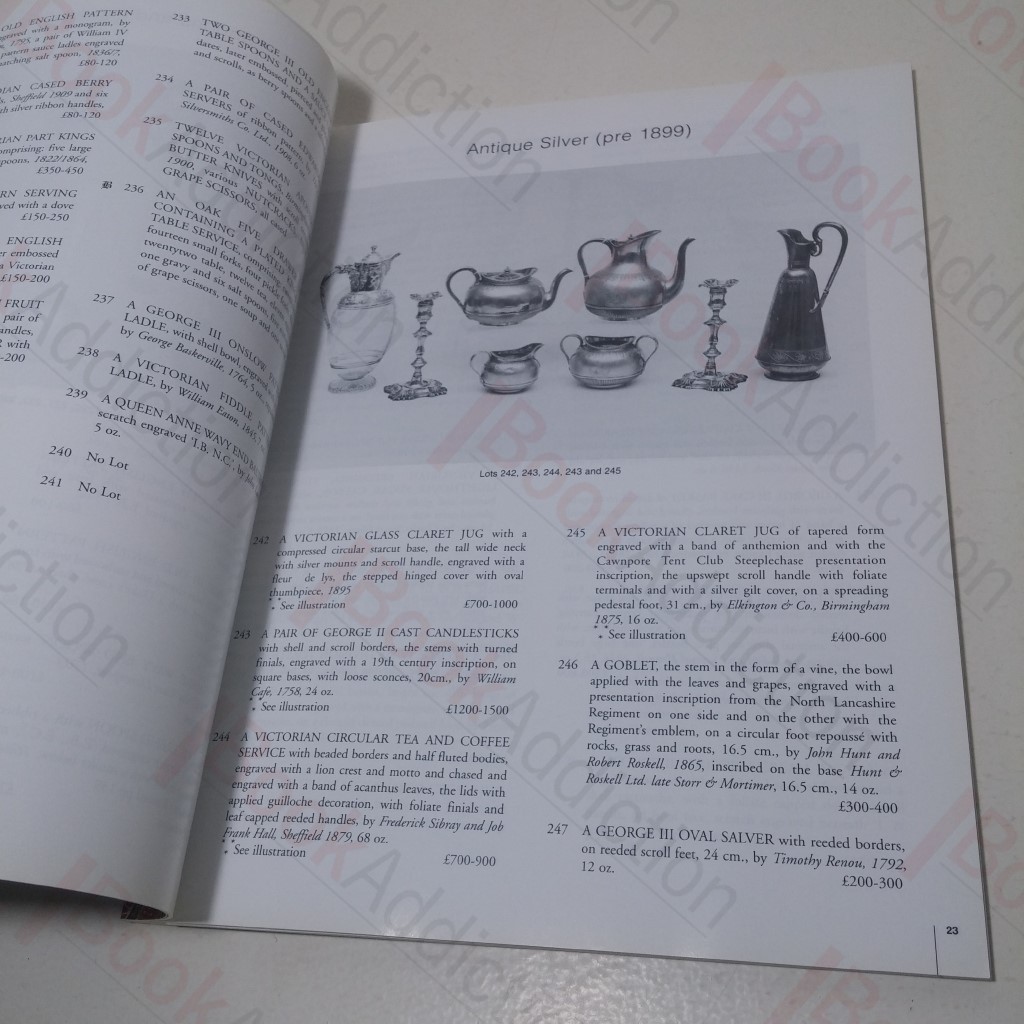 OLD ENGLISH PATTERN
with a monogram, by
1795, a pair of William IV
pattern sauce ladles engraved
matching salt spoon, 1836/7,
£80-120
CASED BERRY
Sheffield 1909 and six
silver ribbon handles,
£80-120
PART KINGS
comprising: five large
spoons, 1822/1864,
£350-450
SERVING
with a dove
£150-250
ENGLISH
embossed
Victorian
£150-200
FRUIT
pair of
handles,
with
-200
233 TWO GEORGE III OLD
TABLE SPOONS AND A
dates, later embossed
and scrolls, as berry spoons
234 A PAIR OF CASED
SERVERS of ribbon pattern,
Silversmiths Co. Ltd., 1908, 6 oz
235 TWELVE VICTORIAN
SPOONS AND TONGS,
BUTTER KNIVES with
1900, various NUTCRACK
GRAPE SCISSORS, all cased
B 236 AN OAK FIVE DRAWER
CONTAINING A PLATED
TABLE SERVICE, comprising
fourteen small forks, four
twentytwo table, twelve tea,
one gravy and six salt spoons,
of grape scissors, one soup and
237 A GEORGE III ONSLOW
LADLE, with shell bowl, engraved
by George Baskerville, 1764, 5 oz.
238 A VICTORIAN FIDDLE
LADLE, by William Eaton, 1845,
239 A QUEEN ANNE WAVY END
scratch engraved 'I.B. N.C.', by
5 oz.
240 No Lot
241 No Lot
Antique Silver (pre 1899)
Lots 242, 243, 244, 243 and 245
242 A VICTORIAN GLASS CLARET JUG with a
compressed circular starcut base, the tall wide neck
with silver mounts and scroll handle, engraved with a
fleur de lys, the stepped hinged cover with oval
thumbpiece, 1895
See illustration £700-1000
243 A PAIR OF GEORGE II CAST CANDLESTICKS
with shell and scroll borders, the stems with turned
finials, engraved with a 19th century inscription, on
square bases, with loose sconces, 20cm., by William
Cafe, 1758, 24 oz.
See illustration £1200-1500
244 A VICTORIAN CIRCULAR TEA AND COFFEE
SERVICE with beaded borders and half fluted bodies,
engraved with a lion crest and motto and chased and
engraved with a band of acanthus leaves, the lids with
applied guilloche decoration, with foliate finials and
leaf capped reeded handles, by Frederick Sibray and Job
Frank Hall, Sheffield 1879, 68 oz.
See illustration £700-900
245 A VICTORIAN CLARET JUG of tapered form
engraved with a band of anthemion and with the
Cawnpore Tent Club Steeplechase presentation
inscription, the upswept scroll handle with foliate
terminals and with a silver gilt cover, on a spreading
pedestal foot, 31 cm., by Elkington & Co., Birmingham
1875, 16 oz.
See illustration £400-600
246 A GOBLET, the stem in the form of a vine, the bowl
applied with the leaves and grapes, engraved with a
presentation inscription from the North Lancashire
Regiment on one side and on the other with the
Regiment's emblem, on a circular foot repoussé with
rocks, grass and roots, 16.5 cm., by John Hunt and
Robert Roskell, 1865, inscribed on the base Hunt &
Roskell Ltd. late Storr & Mortimer, 16.5 cm., 14 oz.
£300-400
247 A GEORGE III OVAL SALVER with reeded borders,
on reeded scroll feet, 24 cm., by Timothy Renou, 1792,
12 oz.
£200-300
23
BookAddiction